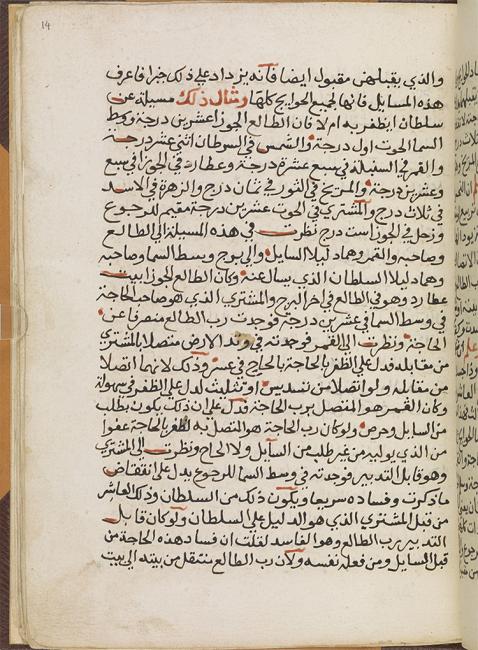 14
والذي يقبلهن مقبول ايضا فانه يزداد علي ذلك خيرا فاعرف
هذه المسايل فانها لجميع الحوايج كلها ومثال ذلك مسيلة عن
سلطان ايظفر به ام لا فان الطالع الجوزا عشرين درجة ووسط
السما الحوت اول درجة والشمس في السرطان اثني عشر درجة
والقمر في السنبلة في سبع عشرة درجة وعطارد في الجوزا في سبع
وعشرين درجة والمريخ في الثور في ثمان درج والزهرة في الاسد
في ثلاث درج والمشتري في الحوت عشرين درجة مقيم للرجوع
وزحل في الجوزا ست درج نظرت في هذه المسيلة الي الطالع
وصاحبه والقمر وهما دليلا السايل والي برج وسط السما وصاحبه
وهما دليلا السلطان الذي يسال عنه وكان الطالع الجوزا بيت
عطارد وهو في الطالع في اخر البرج والمشتري الذي هو صاحب الحاجة
في وسط السما في عشرين درجة فوجدت رب الطالع منصرفا عن
الحاجة ونظرت الي القمر فوجدته في وتد الارض متصلا بالمشتري
من مقابلة فدل علي الظفر بالحاجة بالحاح في عسر وذلك لانهما اتصلا
من مقابلة ولو اتصلا من تسديس او تثليث لدل علي الظفر في سهولة
وكان القمر هو المتصل برب الحاجة فدل علي ان ذلك يكون بطلب
من السايل وحرص ولو كان رب الحاجة هو المتصل به لظفر بالحاجة عفوا
من الذي يوليه من غير طلب من السايل ولا الحاح ونظرت الي المشتري
وهو قابل التدبير فوجدته في وسط السما للرجوع يدل علي انتقاض
ما ذكرت وفساده سريعا ويكون ذلك من السلطان وذلك العاشر
من قبل المشتري الذي هو الدليل علي السلطان ولو كان قابل
التدبير رب الطالع وهو الفاسد لقلت ان فساد هذه الحاجة من
قبل السايل ومن فعله نفسه ولان رب الطالع منتقل من بيته الي بيت